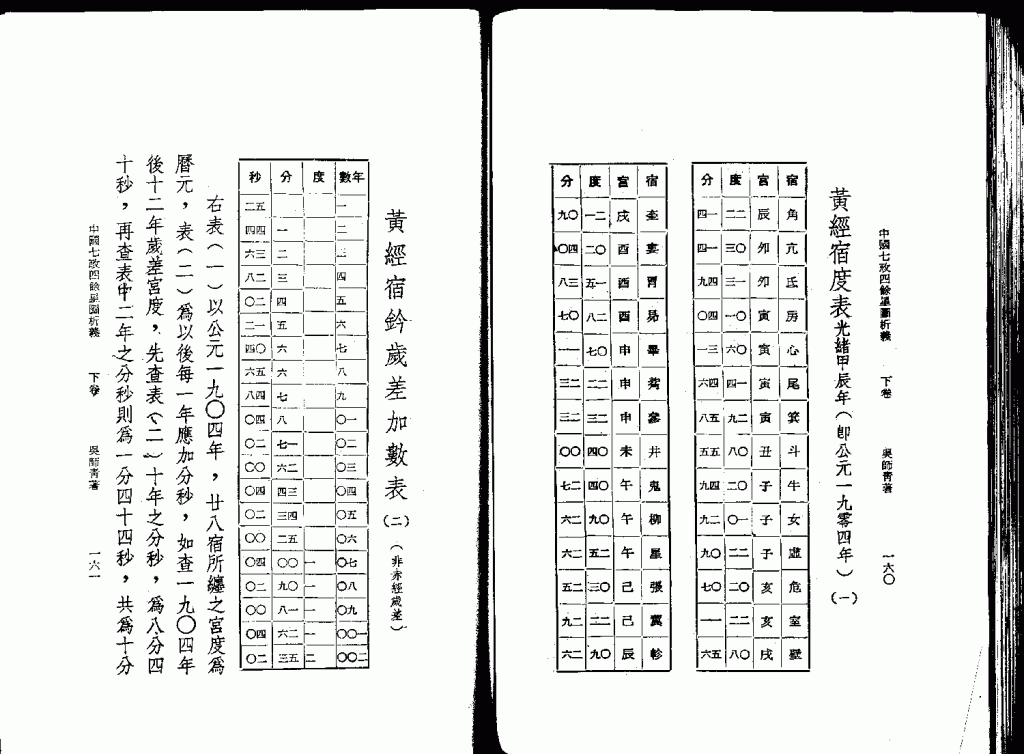 中國七政四餘星圖析義 下卷 吳師青著 一六〇
黃經宿度表光緒甲辰年(即公元一九零四年)(一)
宿 宮 度 分
角 辰 二二 一四
亢 卯 〇三 一四
氐 卯 一三 四九
房 寅 〇一 四〇
心 寅 〇六 三一
尾 寅 一四 四六
箕 寅 二九 五八
斗 丑 〇八 五五
牛 子 〇二 四九
女 子 一〇 二九
虛 子 二二 〇九
危 亥 〇二 〇七
室 亥 二二 一一
壁 戌 〇八 五六
宿 宮 度 分
奎 戌 二一 〇九
婁 酉 〇二 四〇
胃 酉 一五 三八
昴 酉 二八 〇七
畢 申 〇七 一一
觜 申 二二 二三
參 申 二三 二三
井 未 〇四 〇〇
鬼 午 〇四 二七
柳 午 〇九 二六
星 午 二五 二六
張 己 〇三 二五
翼 己 二二 二九
軫 辰 〇九 二六
黃經宿鈐歲差加數表(二)(非赤經歲差)
年數 度 分 秒
一 五二
二 一 四四
三 二 三六
四 三 二八
五 四 二〇
六 五 一二
七 六 〇四
八 六 五六
九 七 四八
一〇 八 四〇
二〇 一七 二〇
三〇 二六 〇〇
四〇 三四 四〇
五〇 四三 二〇
六〇 五二 〇〇
七〇 一 〇〇 四〇
八〇 一 〇九 二〇
九〇 一 一八 〇〇
一〇〇 一 二六 四〇
二〇〇 二 五三 二〇
右表(一)以公元一九〇四年,廿八宿所纏之宮度為
曆元,表(二)為以後每一年應加分秒,如查一九〇四年
後十二年歲差宮度,先查表(二)十年之分秒,為八分四
十秒,再查表中二年之分秒則為一分四十四秒,共為十分
中國七政四餘星圖析義 下卷 吳師青著 一六一